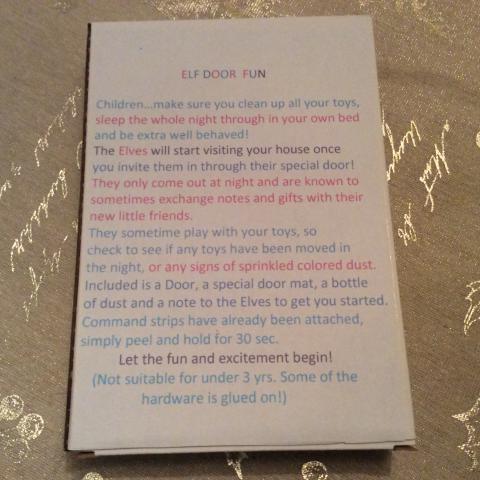 ELF DOOR FUN
Children...make sure you clean up all your toys,
sleep the whole night through in your own bed
and be extra well behaved!
The Elves will start visiting your house once
you invite them in through their special door!
They only come out at night and are known to
sometimes exchange notes and gifts with their
new little friends.
They sometime play with your toys, so
check to see if any toys have been moved in
the night, or any signs of sprinkled colored dust.
Included is a Door, a special door mat, a bottle
of dust and a note to the Elves to get you started.
Command strips have already been attached,
simply peel and hold for 30 sec.
Let the fun and excitement begin!
(Not suitable for under 3 yrs. Some of the
hardware is glued on!)